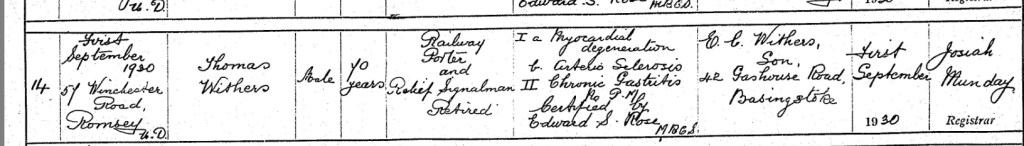 U.D.
Edward S. Rose M.R.C.S.
1930
Registrar
14
First
September
1930
57 Winchester
Road,
Romsey
U.D.
Thomas
Withers
Male
70
years
Railway
Porter
and
Relief Signalman
Retired
I a Myocardial
degeneration
b. Arterio Sclerosis
II Chronic Gastritis
No P.M.
Certified by
Edward S. Rose
M.R.C.S.
E. C. Withers,
Son,
42 Gashouse Road,
Basingstoke
First
September
1930
Josiah
Munday
Registrar